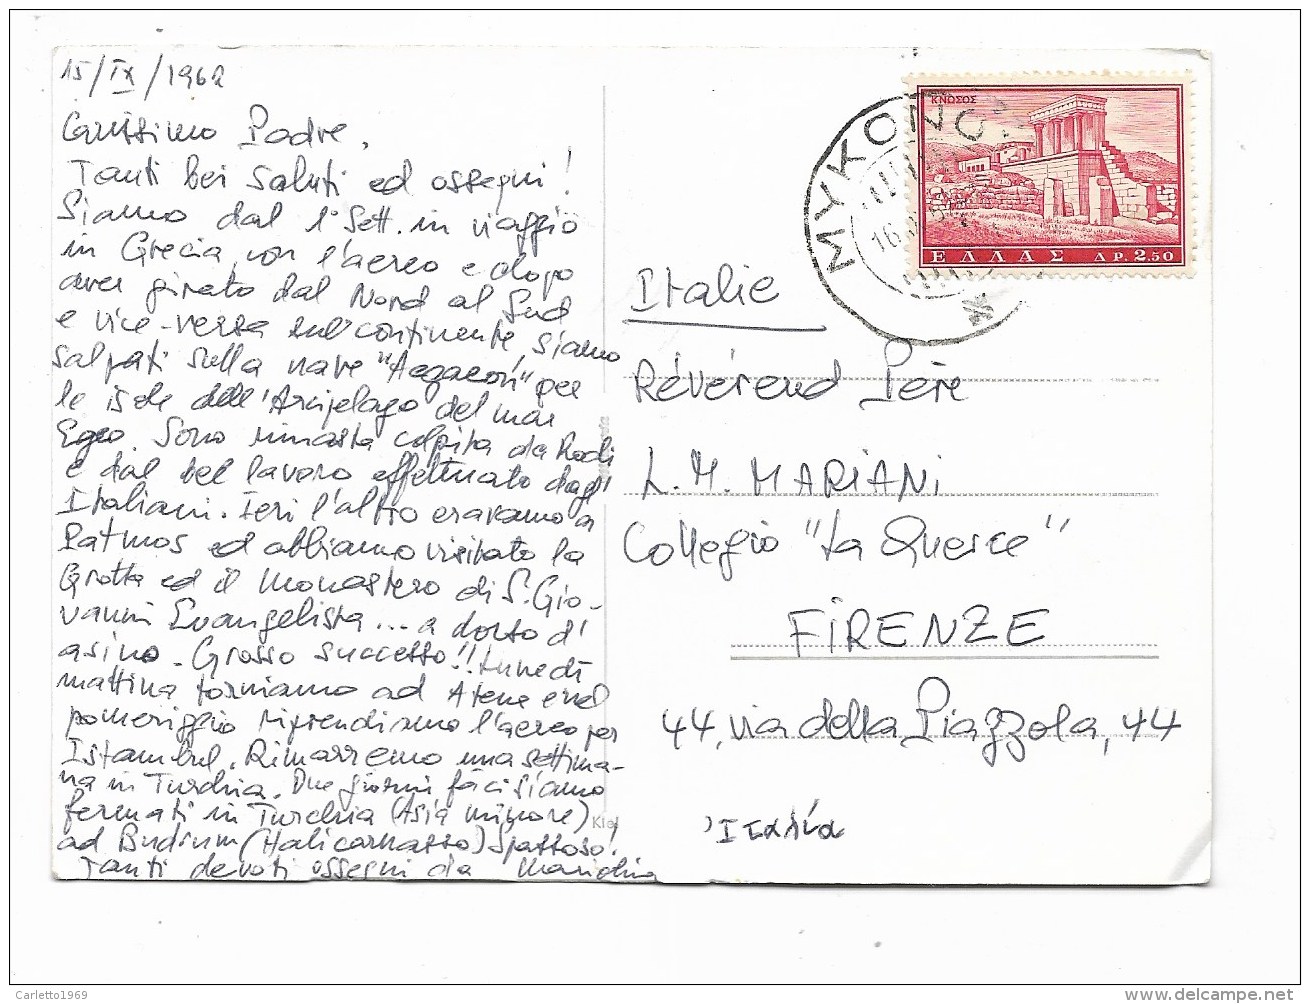 15/IX/1962
Carissimo Padre,
Tanti bei saluti ed ossequi!
Siamo dal 1° Sett. in viaggio
in Grecia, con l'aereo e dopo
aver girato dal Nord al Sud
e vice-versa sul continente, siamo
salpati sulla nave "Aegaeon" per
le isole dell'Arcipelago del mar
Egeo. Sono rimasta colpita da Rodi
e dal bel lavoro effettuato dagl'
Italiani. Ieri l'altro eravamo a
Patmos ed abbiamo visitato la
Grotta ed il monastero di S. Gio-
vanni Evangelista... a dorso d'
asino. Grosso successo!! Lunedì
mattina torniamo ad Atene e nel
pomeriggio riprendiamo l'aereo per
Istambul. Rimarremo una settima-
na in Turchia. Due giorni fa ci siamo
fermati in Turchia (Asia minore)
ad Budrum (Halicarnasso) Spassoso!
Tanti devoti ossequi da Mariolina
ΚΝΩΣΟΣ
ΕΛΛΑΣ ΔΡ. 2.50
ΜΥΚΟΝΟΣ
16
Italie
Révérend Père
L. M. MARIANI
Collegio "La Querce"
FIRENZE
44, via della Piazzola, 44
Ἰταλία
Kiel
Carletto1969
delcampe.net